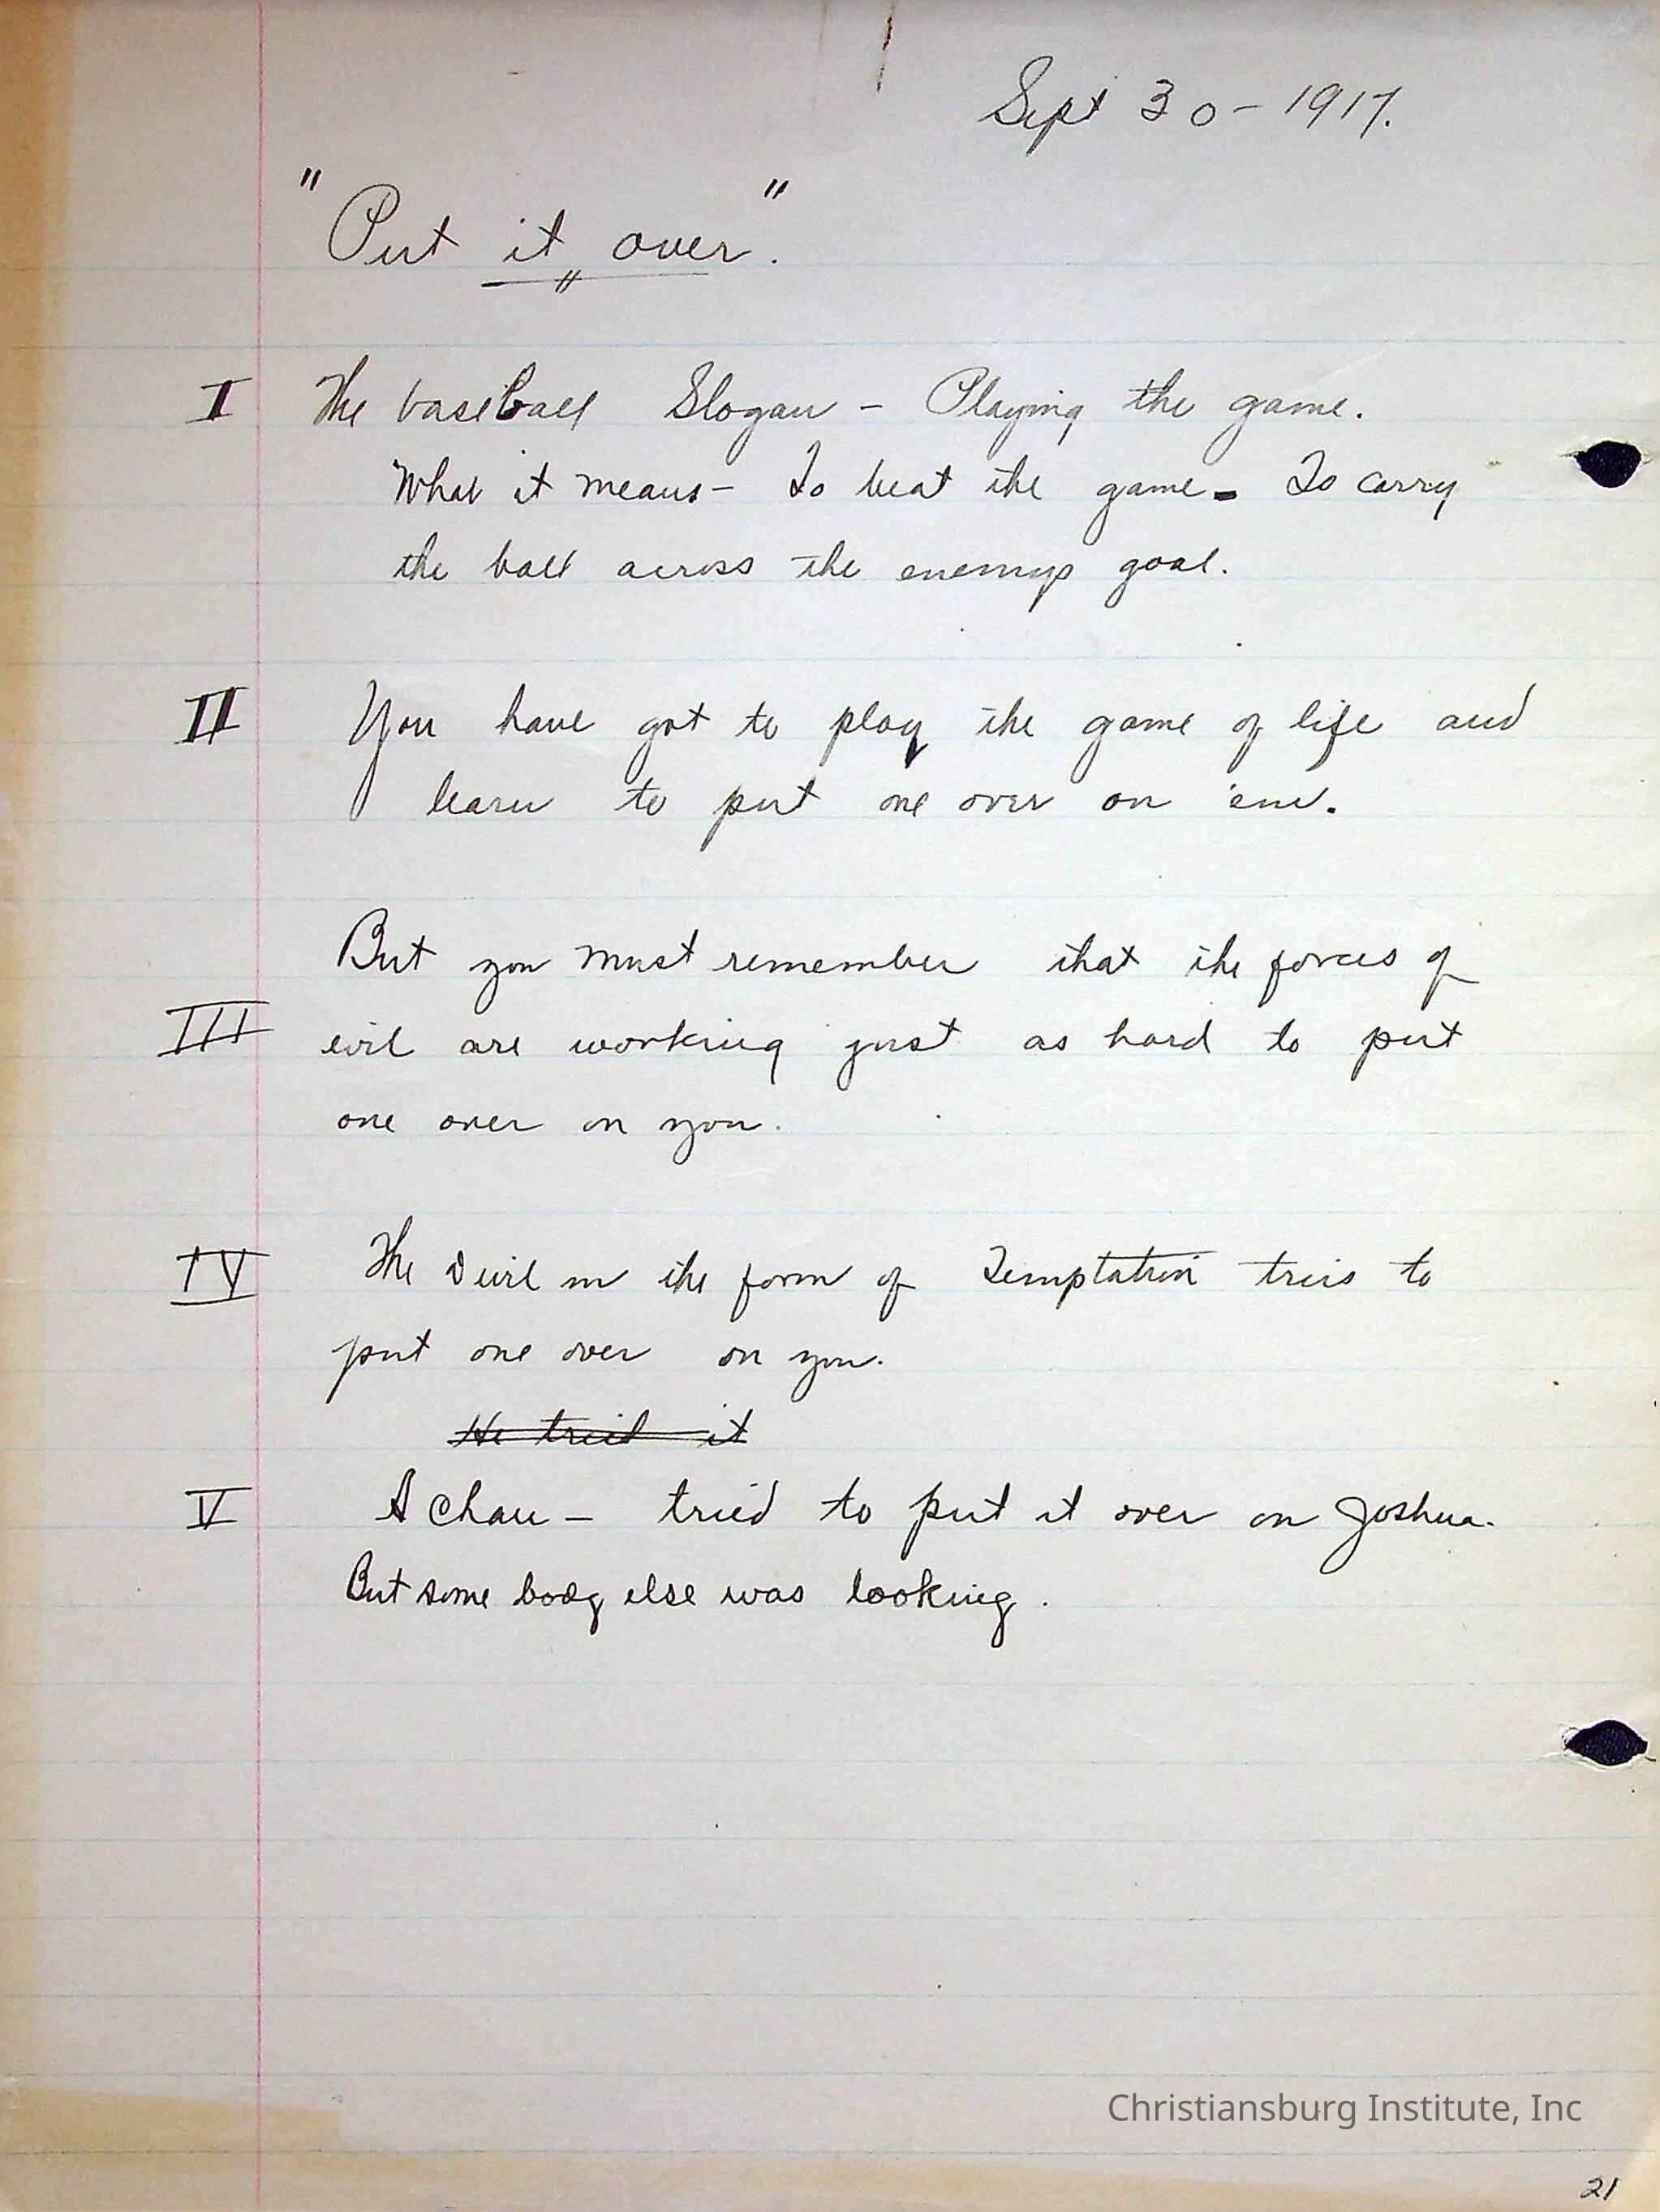 Sept 30 - 1917.
"Put it over."
I The baseball Slogan - Playing the game.
What it means - To beat the game - To carry
the ball across the enemys goal.
II You have got to play the game of life and
learn to put one over on 'em.
But you must remember that the forces of
III evil are working just as hard to put
one over on you.
IV The Devil in the form of Temptation tries to
put one over on you.
He tried it
V Achan - tried to put it over on Joshua.
But some body else was looking.
Christiansburg Institute, Inc
21